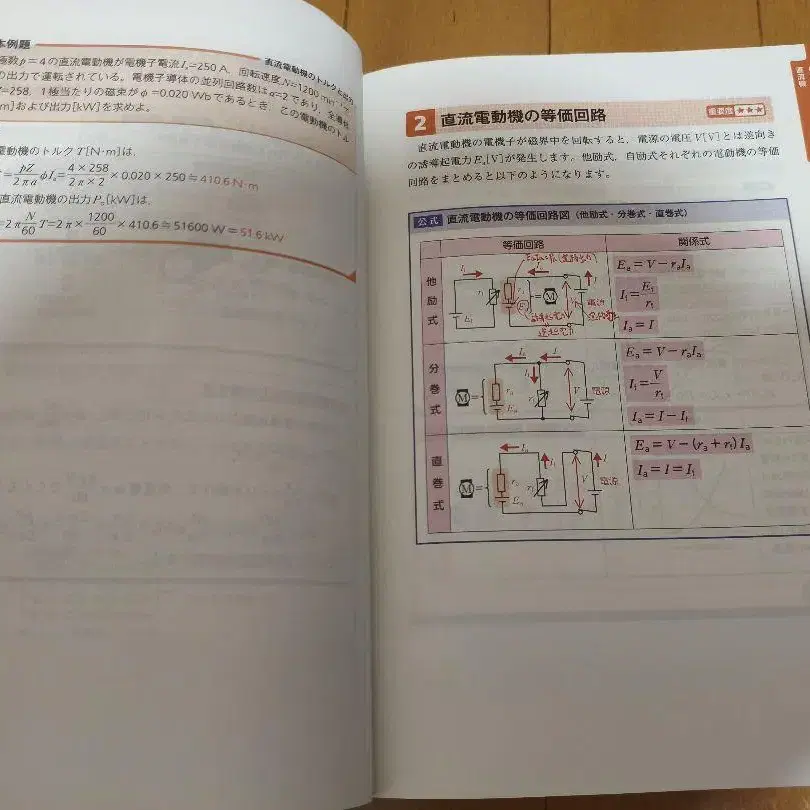 本例題
直流電動機のトルクと出力
極数p=4の直流電動機が電機子電流Iₐ=250 A, 回転速度N=1200 min⁻¹で
の出力で運転されている。電機子導体の並列回路数はa=2であり, 全導体
Z=258, 1極当たりの磁束がφ=0.020 Wbであるとき, この電動機のトル
[N·m]および出力[kW]を求めよ。
電動機のトルクT[N·m]は,
T=pZ/2πa φIₐ=4×258/2π×2×0.020×250≒410.6 N·m
直流電動機の出力Pₒ[kW]は,
=2π N/60 T=2π×1200/60×410.6≒51600 W=51.6 kW
直流機
2 直流電動機の等価回路
重要度★★★
直流電動機の電機子が磁界中を回転すると, 電源の電圧V[V]とは逆向き
の誘導起電力Eₐ[V]が発生します。他励式, 自励式それぞれの電動機の等価
回路をまとめると以下のようになります。
公式 直流電動機の等価回路図(他励式・分巻式・直巻式)
等価回路 関係式
他励式
If Iₐ I
rf rₐ M V 電源
Ef Eₐ
Eₐ=V−rₐIₐ
If=Ef/rf
Iₐ=I
分巻式
Iₐ I
M = rₐ If rf V 電源
Eₐ
Eₐ=V−rₐIₐ
If=V/rf
Iₐ=I−If
直巻式
Iₐ If I
M = rₐ rf V 電源
Eₐ
Eₐ=V−(rₐ+rf)Iₐ
Iₐ=I=If